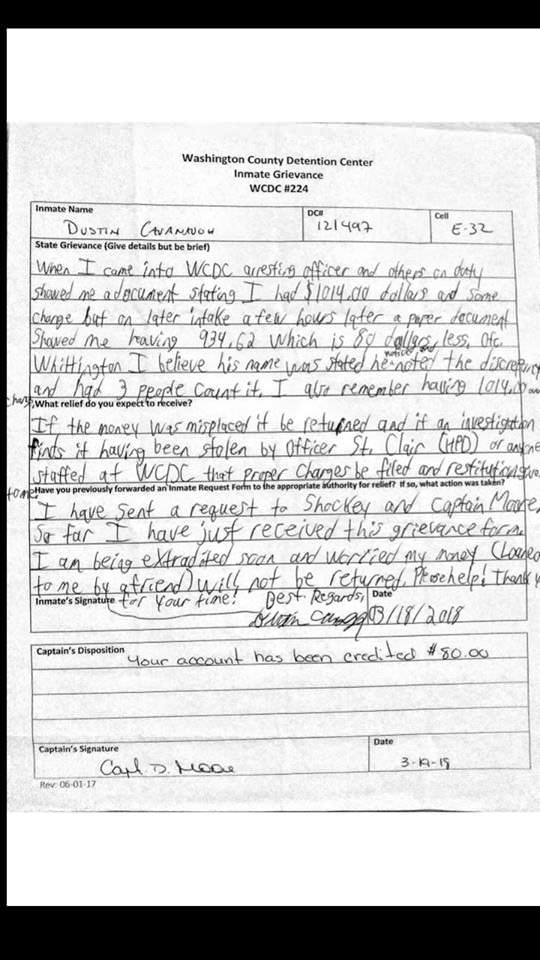 Washington County Detention Center
Inmate Grievance
WCDC #224
Inmate Name DC# Cell
DUSTIN CAVANAUGH 121497 E-32
State Grievance (Give details but be brief)
When I came into WCDC arresting officer and others on duty
showed me a document stating I had $1014.00 dollars and some
change but on later intake a few hours later a paper document
showed me having 934.62 which is 80 dollars less. Ofc.
Whittington I believe his name was stated he noted the discrepancy
notice
and had 3 people count it. I also remember having 1014.00 and
change
What relief do you expect to receive?
If the money was misplaced it be returned and if an investigation
finds it having been stolen by Officer St. Clair (HPD) or anyone
staffed at WCDC that proper charges be filed and restitution given
to me.
Have you previously forwarded an Inmate Request Form to the appropriate authority for relief? If so, what action was taken?
I have sent a request to Shockey and Captain Moore,
so far I have just received this grievance form.
I am being extradited soon and worried my money (Loaned
to me by a friend) will not be returned. Please help! Thank you
Inmate's Signature for your time! Best Regards, Date
03/18/2018
Captain's Disposition
Your account has been credited $80.00
Captain's Signature Date
Capt. D. Moore 3-19-18
Rev: 06-01-17